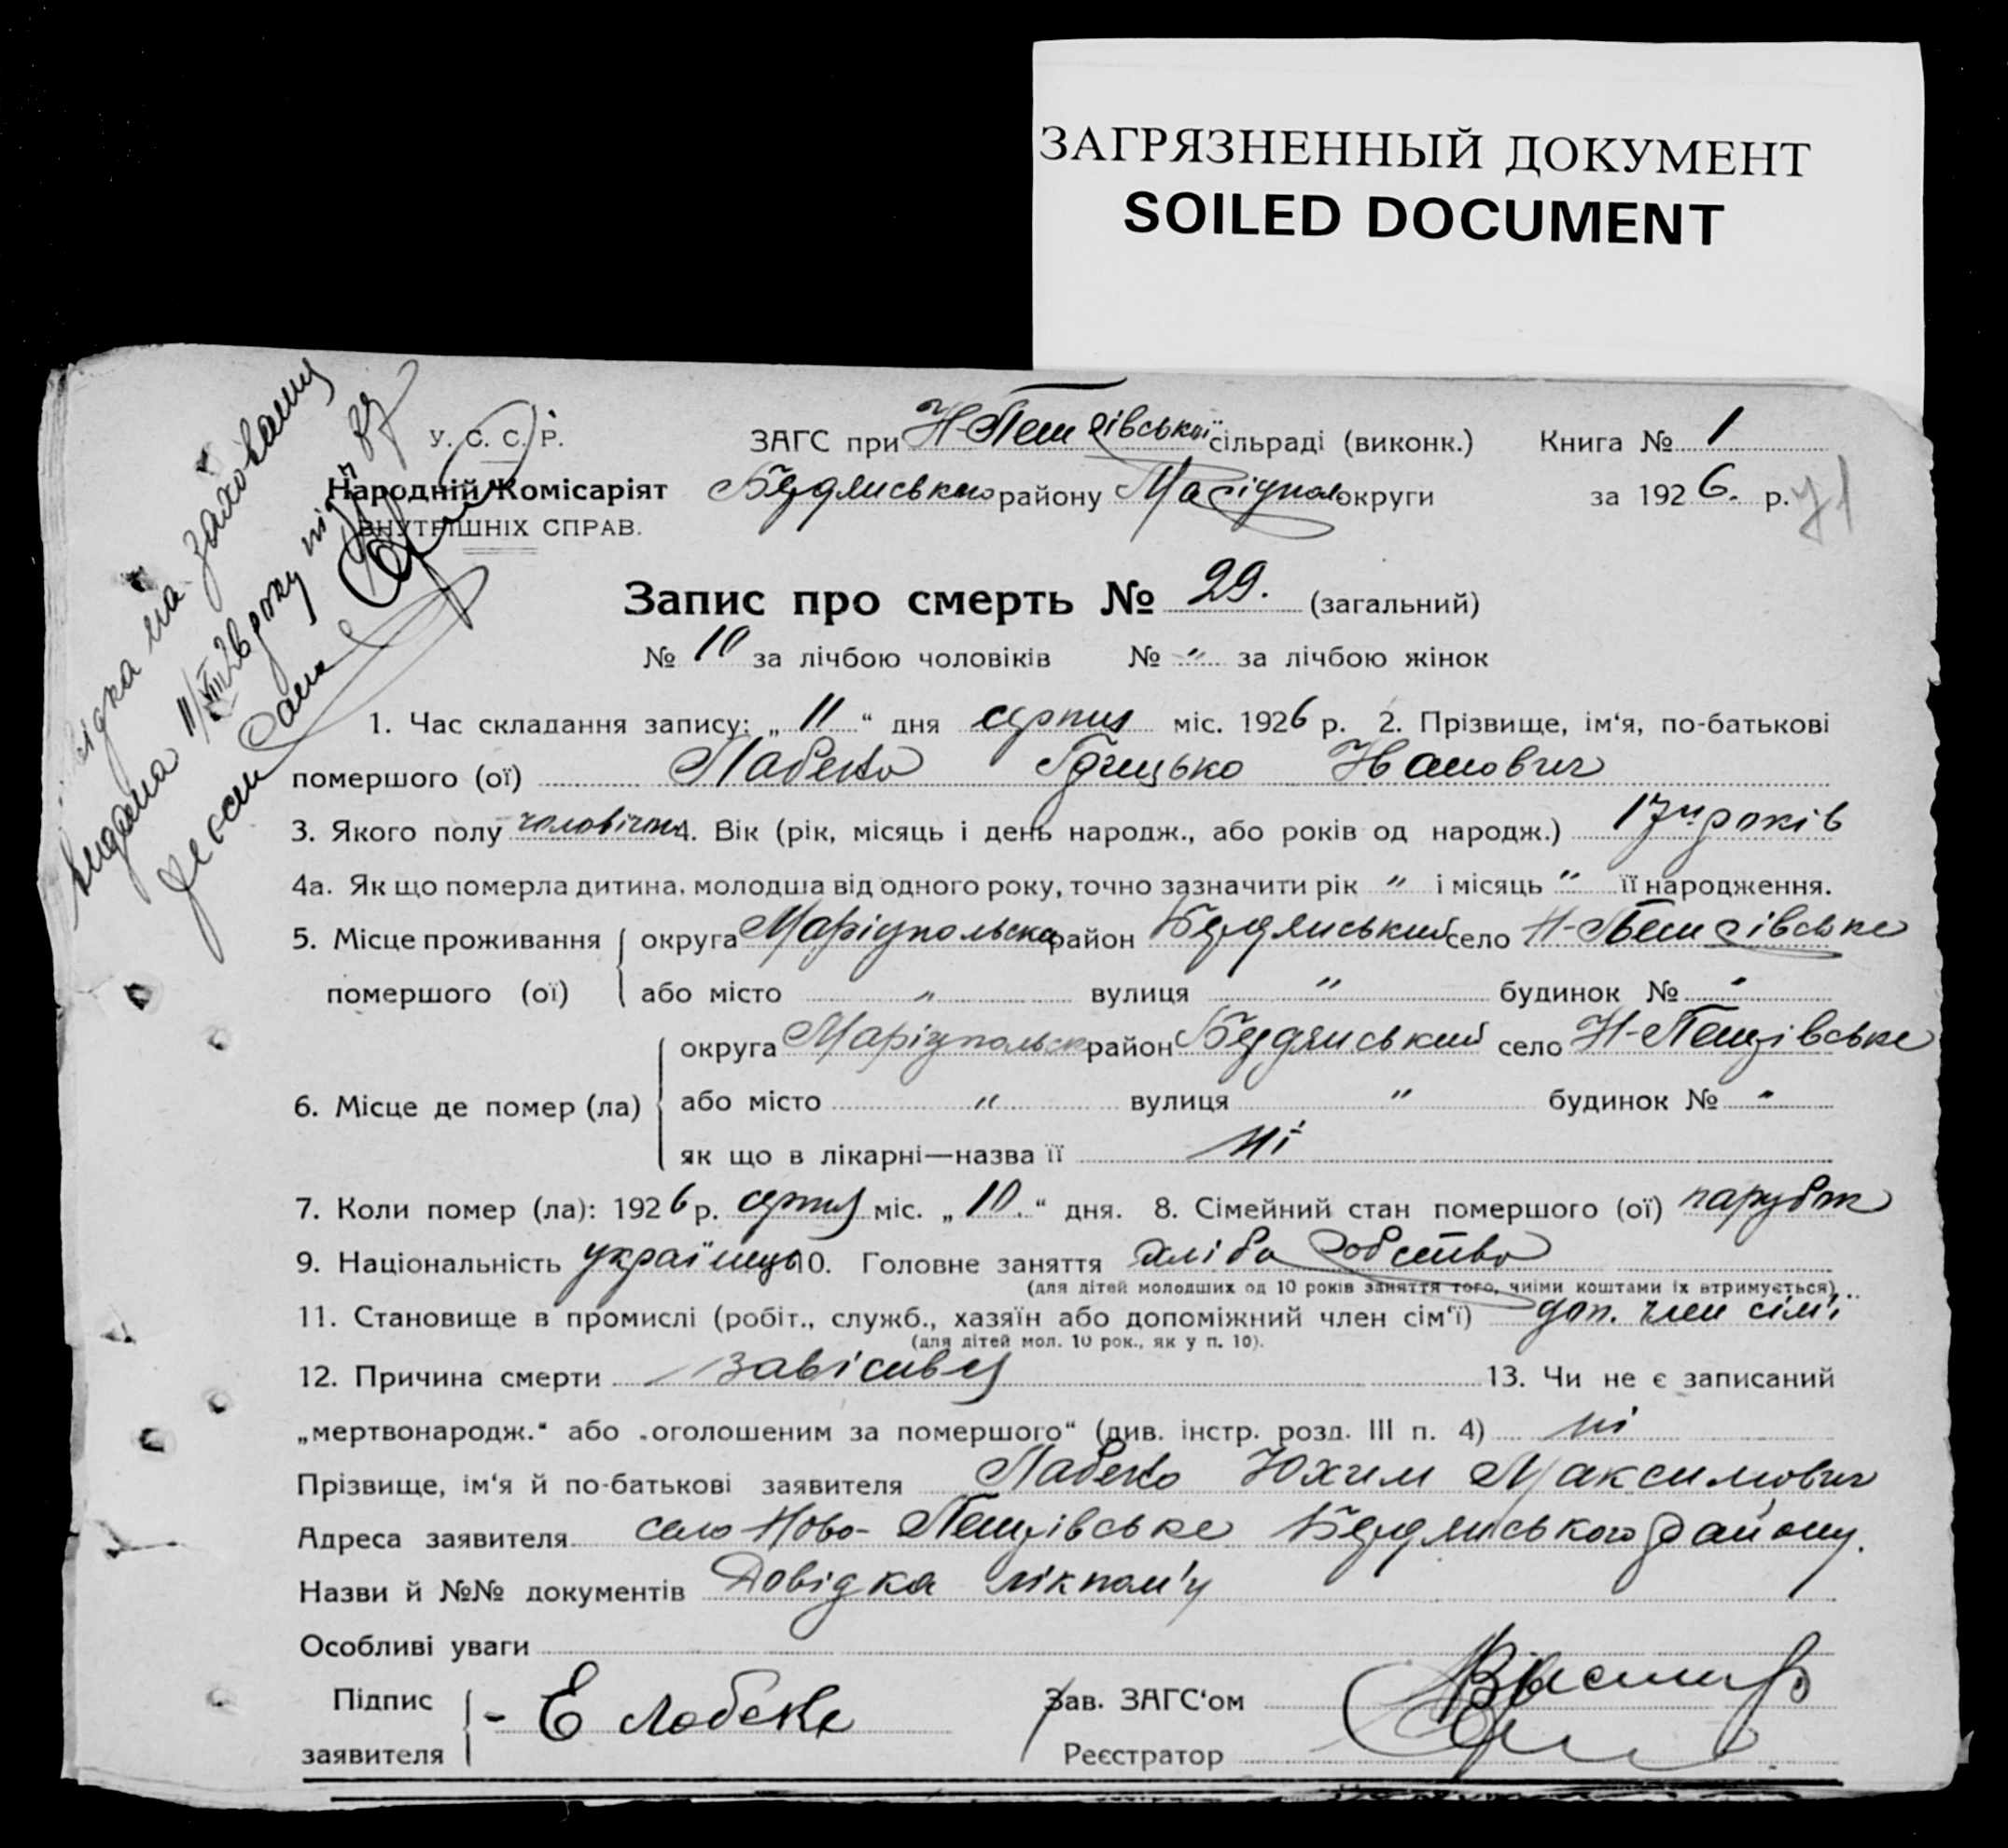 ЗАГРЯЗНЕННЫЙ ДОКУМЕНТ
SOILED DOCUMENT
У. С. С. Р.
Народній Комісаріят
ВНУТРІШНІХ СПРАВ.
на заховання
видана 11/VIII 26 року під
ЗАГС при Н-Петрівській сільраді (виконк.) Книга № 1
Бердянського району Маріупол округи за 1926. р. 71
Запис про смерть № 29. (загальний)
№ 10 за лічбою чоловіків № " за лічбою жінок
1. Час складання запису: „ 11 “ дня серпня міс. 1926 р. 2. Прізвище, ім‘я, по-батькові
помершого (ої) Лабенко Грицько Іванович
3. Якого полу чоловічого 4. Вік (рік, місяць і день народж., або років од народж.) 17 років
4а. Як що померла дитина, молодша від одного року, точно зазначити рік " і місяць " її народження.
5. Місце проживання помершого (ої) округа Маріупольська район Бердянський село Н-Петрівське
або місто " вулиця " будинок № "
6. Місце де помер (ла) округа Маріупольськ район Бердянський село Н-Петрівське
або місто " вулиця " будинок № "
як що в лікарні—назва її ні
7. Коли помер (ла): 1926 р. серпня міс. „ 10. “ дня. 8. Сімейний стан помершого (ої) парубок
9. Національність українець 10. Головне заняття хліборобство
(для дітей молодших од 10 років заняття того, чиїми коштами їх втримується)
11. Становище в промислі (робіт., служб., хазяїн або допоміжний член сім‘ї) доп. член сім'ї
(для дітей мол. 10 рок., як у п. 10).
12. Причина смерти завісився 13. Чи не є записаний
„мертвонародж.“ або „оголошеним за помершого“ (див. інстр. розд. III п. 4) ні
Прізвище, ім‘я й по-батькові заявителя Лабенко Юхим Максимович
Адреса заявителя село Ново-Петрівське Бердянського району.
Назви й №№ документів Довідка лікпом'у
Особливі уваги
Підпис заявителя - Е Лабенко
Зав. ЗАГС‘ом
Реєстратор